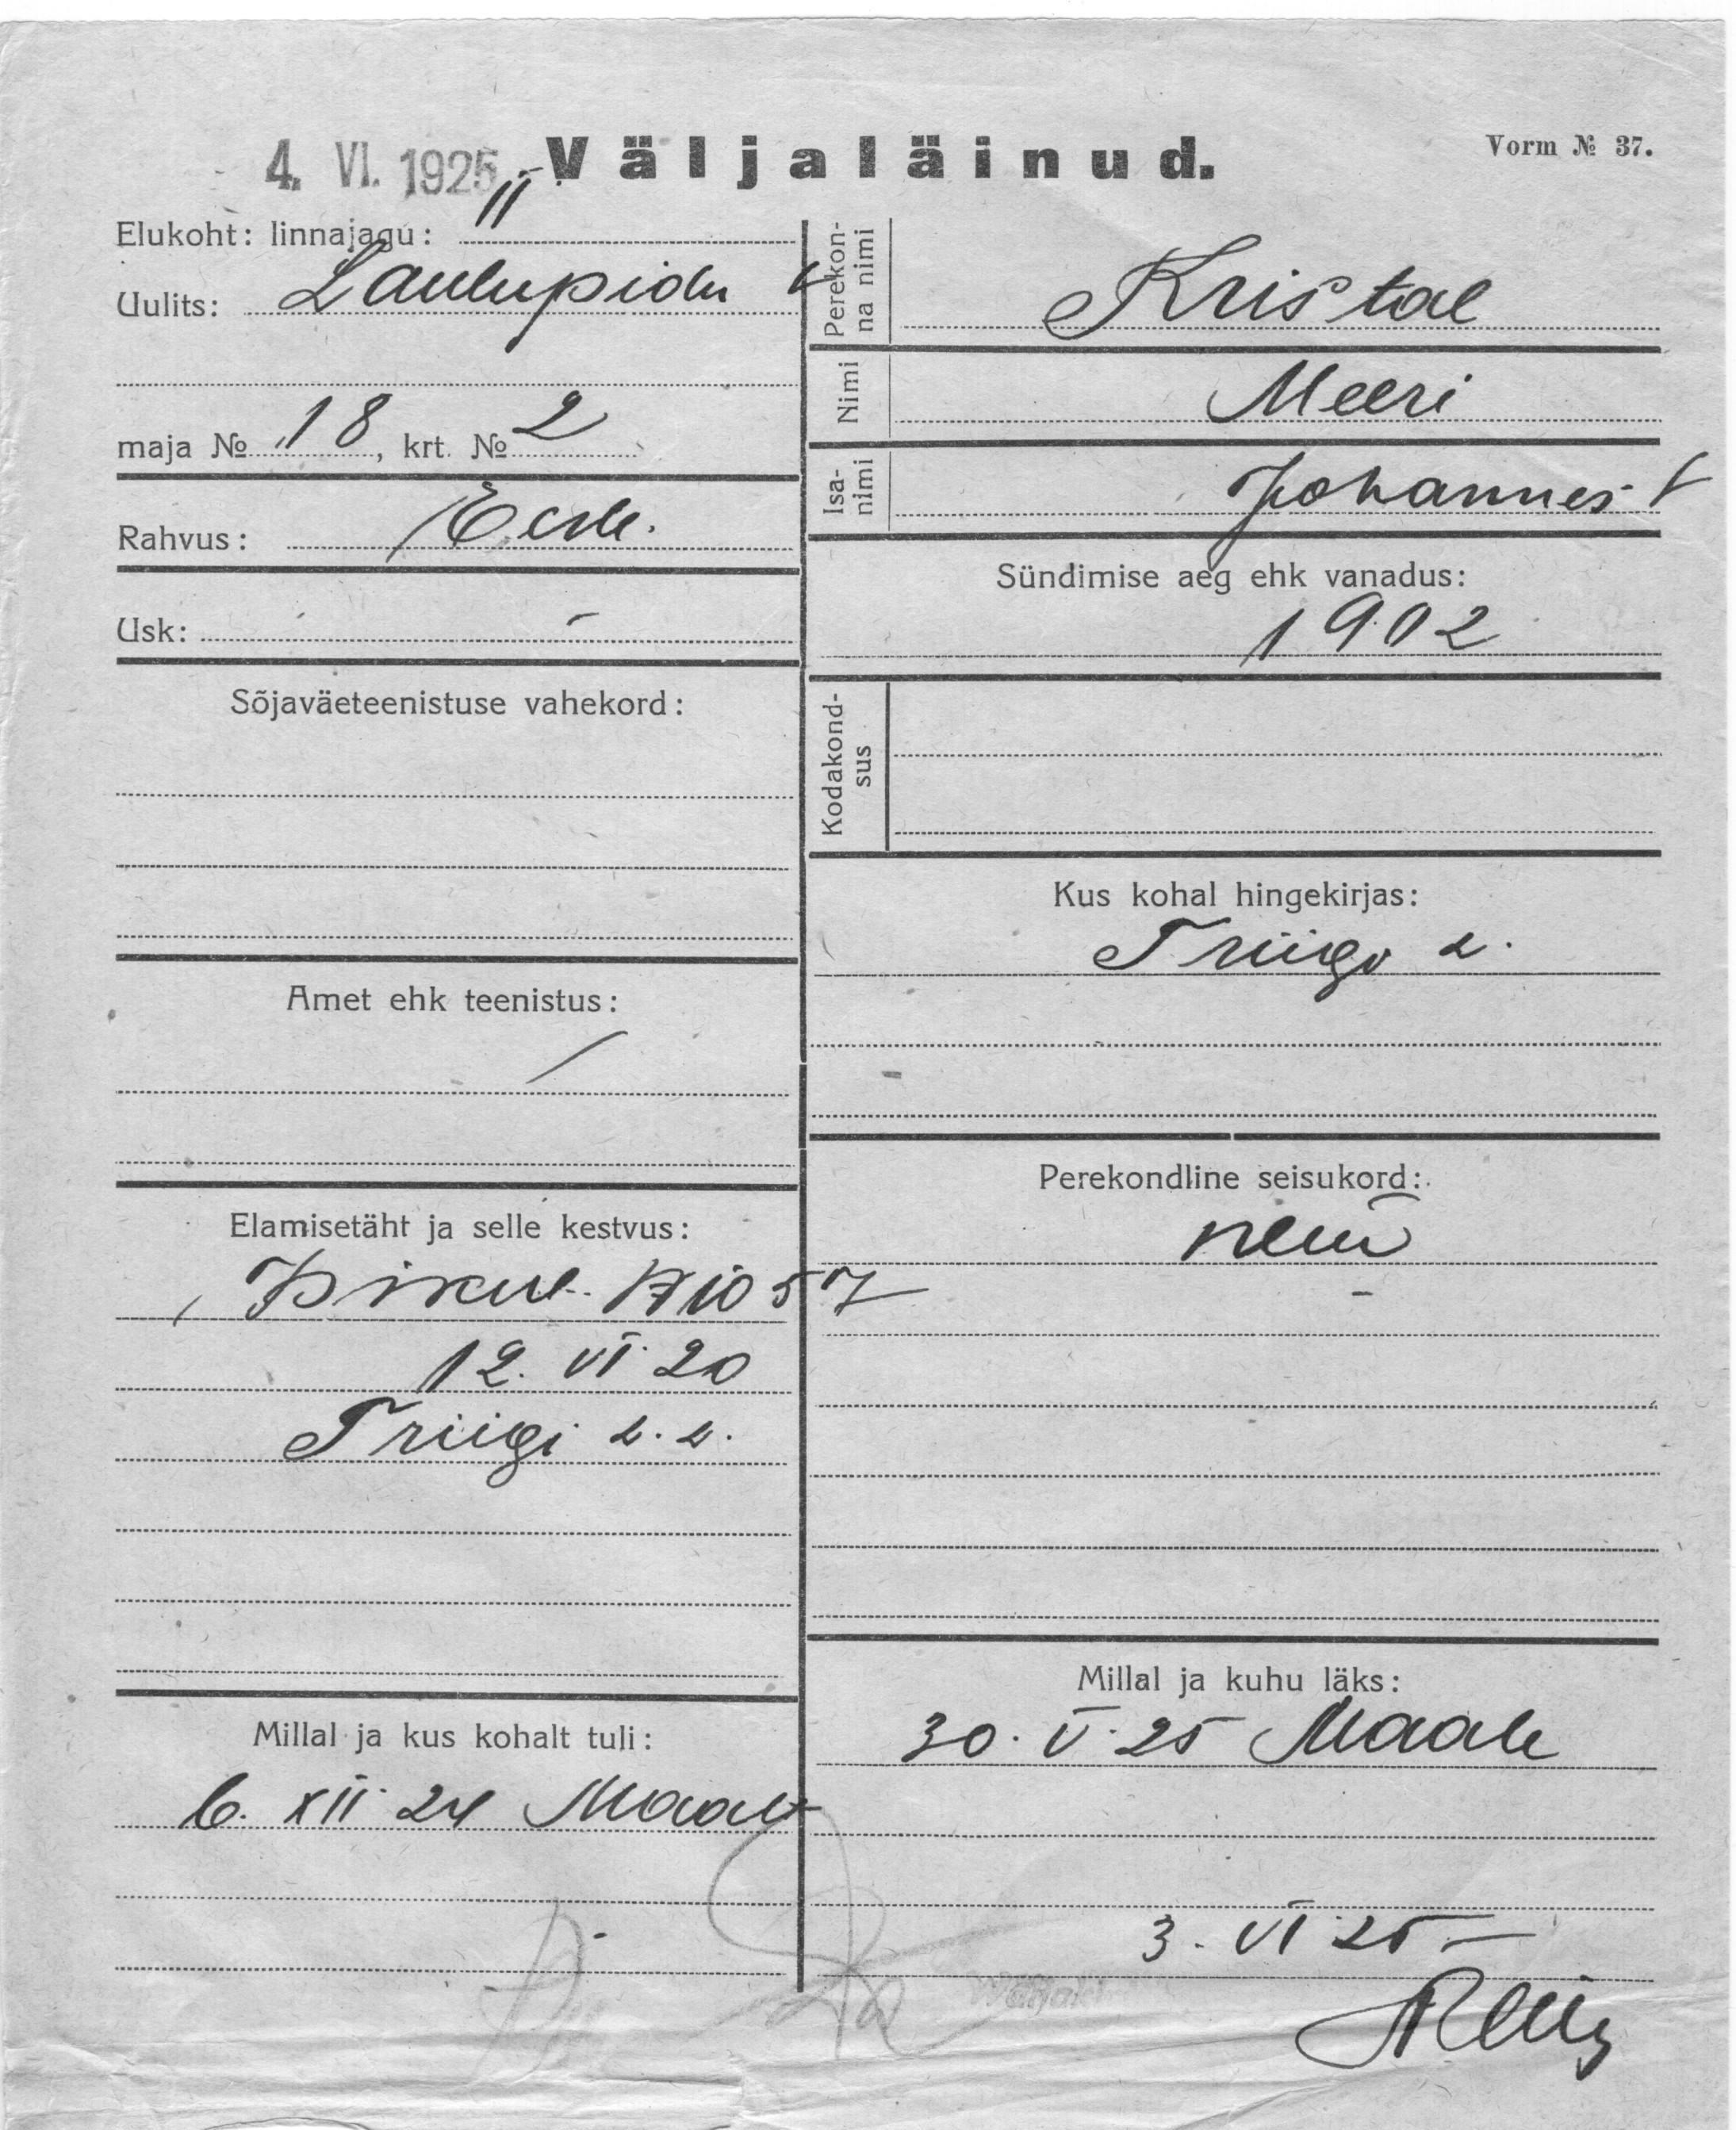 4. VI. 1925 Väljaläinud.
Vorm № 37.
Elukoht: linnajagu: II
Uulits: Laulupidu
maja № 18, krt. № 2
Rahvus: Eesti.
Usk: -
Sõjaväeteenistuse vahekord:
Amet ehk teenistus:
Elamisetäht ja selle kestvus:
57
12. VI 20
Triigi v. v.
Millal ja kus kohalt tuli:
6. XII 24 Maalt
Perekonna nimi
Kristal
Nimi
Meeri
Isanimi
Johannes t
Sündimise aeg ehk vanadus:
1902
Kodakondsus
Kus kohal hingekirjas:
Triigi v.
Perekondline seisukord:
neiu
Millal ja kuhu läks:
30. V. 25 Maale
3. VI 25